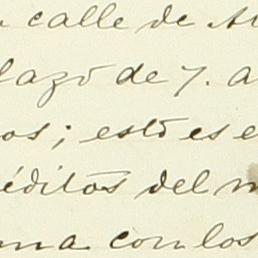 calle de A
lazo de 7. a
os; esto es e
éditos del m
una con los